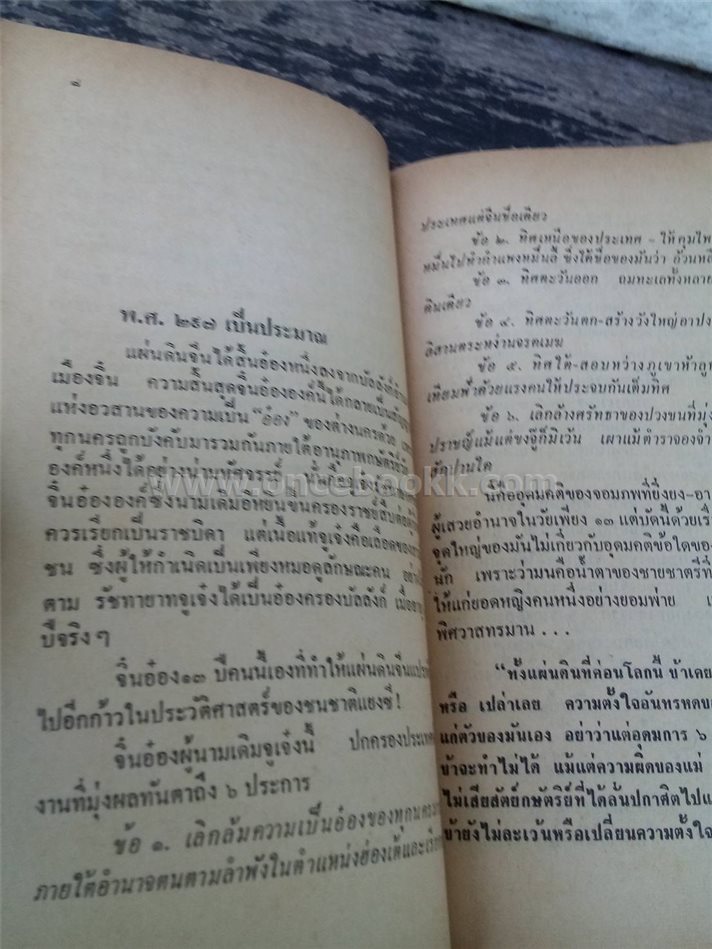 ๘
พ.ศ. ๒๙๗ เป็นประมาณ
แผ่นดินจีนได้สิ้นอ๋องหนึ่งลงจากบัลลังก์
เมืองจิ๋น ความสิ้นสุดจิ๋นอ๋ององค์นี้ได้กลาย
แห่งอวสานของความเป็น "อ๋อง" ของต่างนครด้วย
ทุกนครถูกบังคับมารวมกันภายใต้อานุภาพกษัตริย์
องค์หนึ่งได้อย่างน่ามหัศจรรย์
จิ๋นอ๋ององค์ซึ่งนามเดิมอิหยินจีนครองราชย์สืบต่อ
ควรเรียกเป็นราชบิดา แต่เนื้อแท้จูเจ๋งคือเลือดของ
ชน ซึ่งผู้ให้กำเนิดเป็นเพียงหมอดูลักษณะคน
ตาม รัชทายาทจูเจ๋งได้เป็นอ๋องครองบัลลังก์
ปีจริงๆ
จิ๋นอ๋อง๑๓ ปีคนนี้เองที่ทำให้แผ่นดินจีน
ไปอีกก้าวในประวัติศาสตร์ของชนชาติแยงซี!
จิ๋นอ๋องผู้นามเดิมจูเจ๋งนี้ ปกครองประเทศ
งานที่มุ่งผลทันตาถึง ๖ ประการ
ข้อ ๑. เลิกล้มความเป็นอ๋องของทุกนคร
ภายใต้อำนาจตนตามลำพังในตำแหน่งฮ่องเต้และ
ประเทศแต่จีนชื่อเดียว
ข้อ ๒. ทิศเหนือของประเทศ - ให้คุมไพ
หมื่นไปทำกำแพงหมื่นลี้ ซึ่งได้ชื่อของมันว่า
ข้อ ๓. ทิศตะวันออก ถมทะเลทั้งหลาย
ดินเดียว
ข้อ ๔. ทิศตะวันตก-สร้างวังใหญ่อาปง
ลิสานตระหง่านจรดเมฆ
ข้อ ๕. ทิศใต้-สอบหว่างภูเขาห้าลูก
เทียมฟ้าด้วยแรงคนให้ประจบกันเต็มทิศ
ข้อ ๖. เลิกล้างศรัทธาของปวงชนที่มุ่ง
ปราชญ์แม้แต่ขงจู๊ก็มิเว้น เผาแม้ตำราจองจำ
นี่คืออุดมคติของจอมภพที่ยิ่งยง-อา
ผู้เสวยอำนาจในวัยเพียง ๑๓ แต่บัดนี้ด้วย
จุดใหญ่ของมันไม่เกี่ยวกับอุดมคติข้อใดของ
นัก เพราะว่ามันคือน้ำตาของชายชาตรีที่
ให้แก่ยอดหญิงคนหนึ่งอย่างยอมพ่าย
พิศวาสทรมาน ...
"ทั้งแผ่นดินที่ค่อนโลกนี้ ข้าเคย
หรือ เปล่าเลย ความตั้งใจอันทรหดของ
แก่ตัวของมันเอง อย่าว่าแต่อุดมการ ๖
ข้าจะทำไม่ได้ แม้แต่ความผิดของแม่
ไม่เสียสัตย์กษัตริย์ที่ได้ลั่นปกาศิตไป
ข้ายังไม่ละเว้นหรือเปลี่ยนความตั้งใจ
www.oncebookk.com